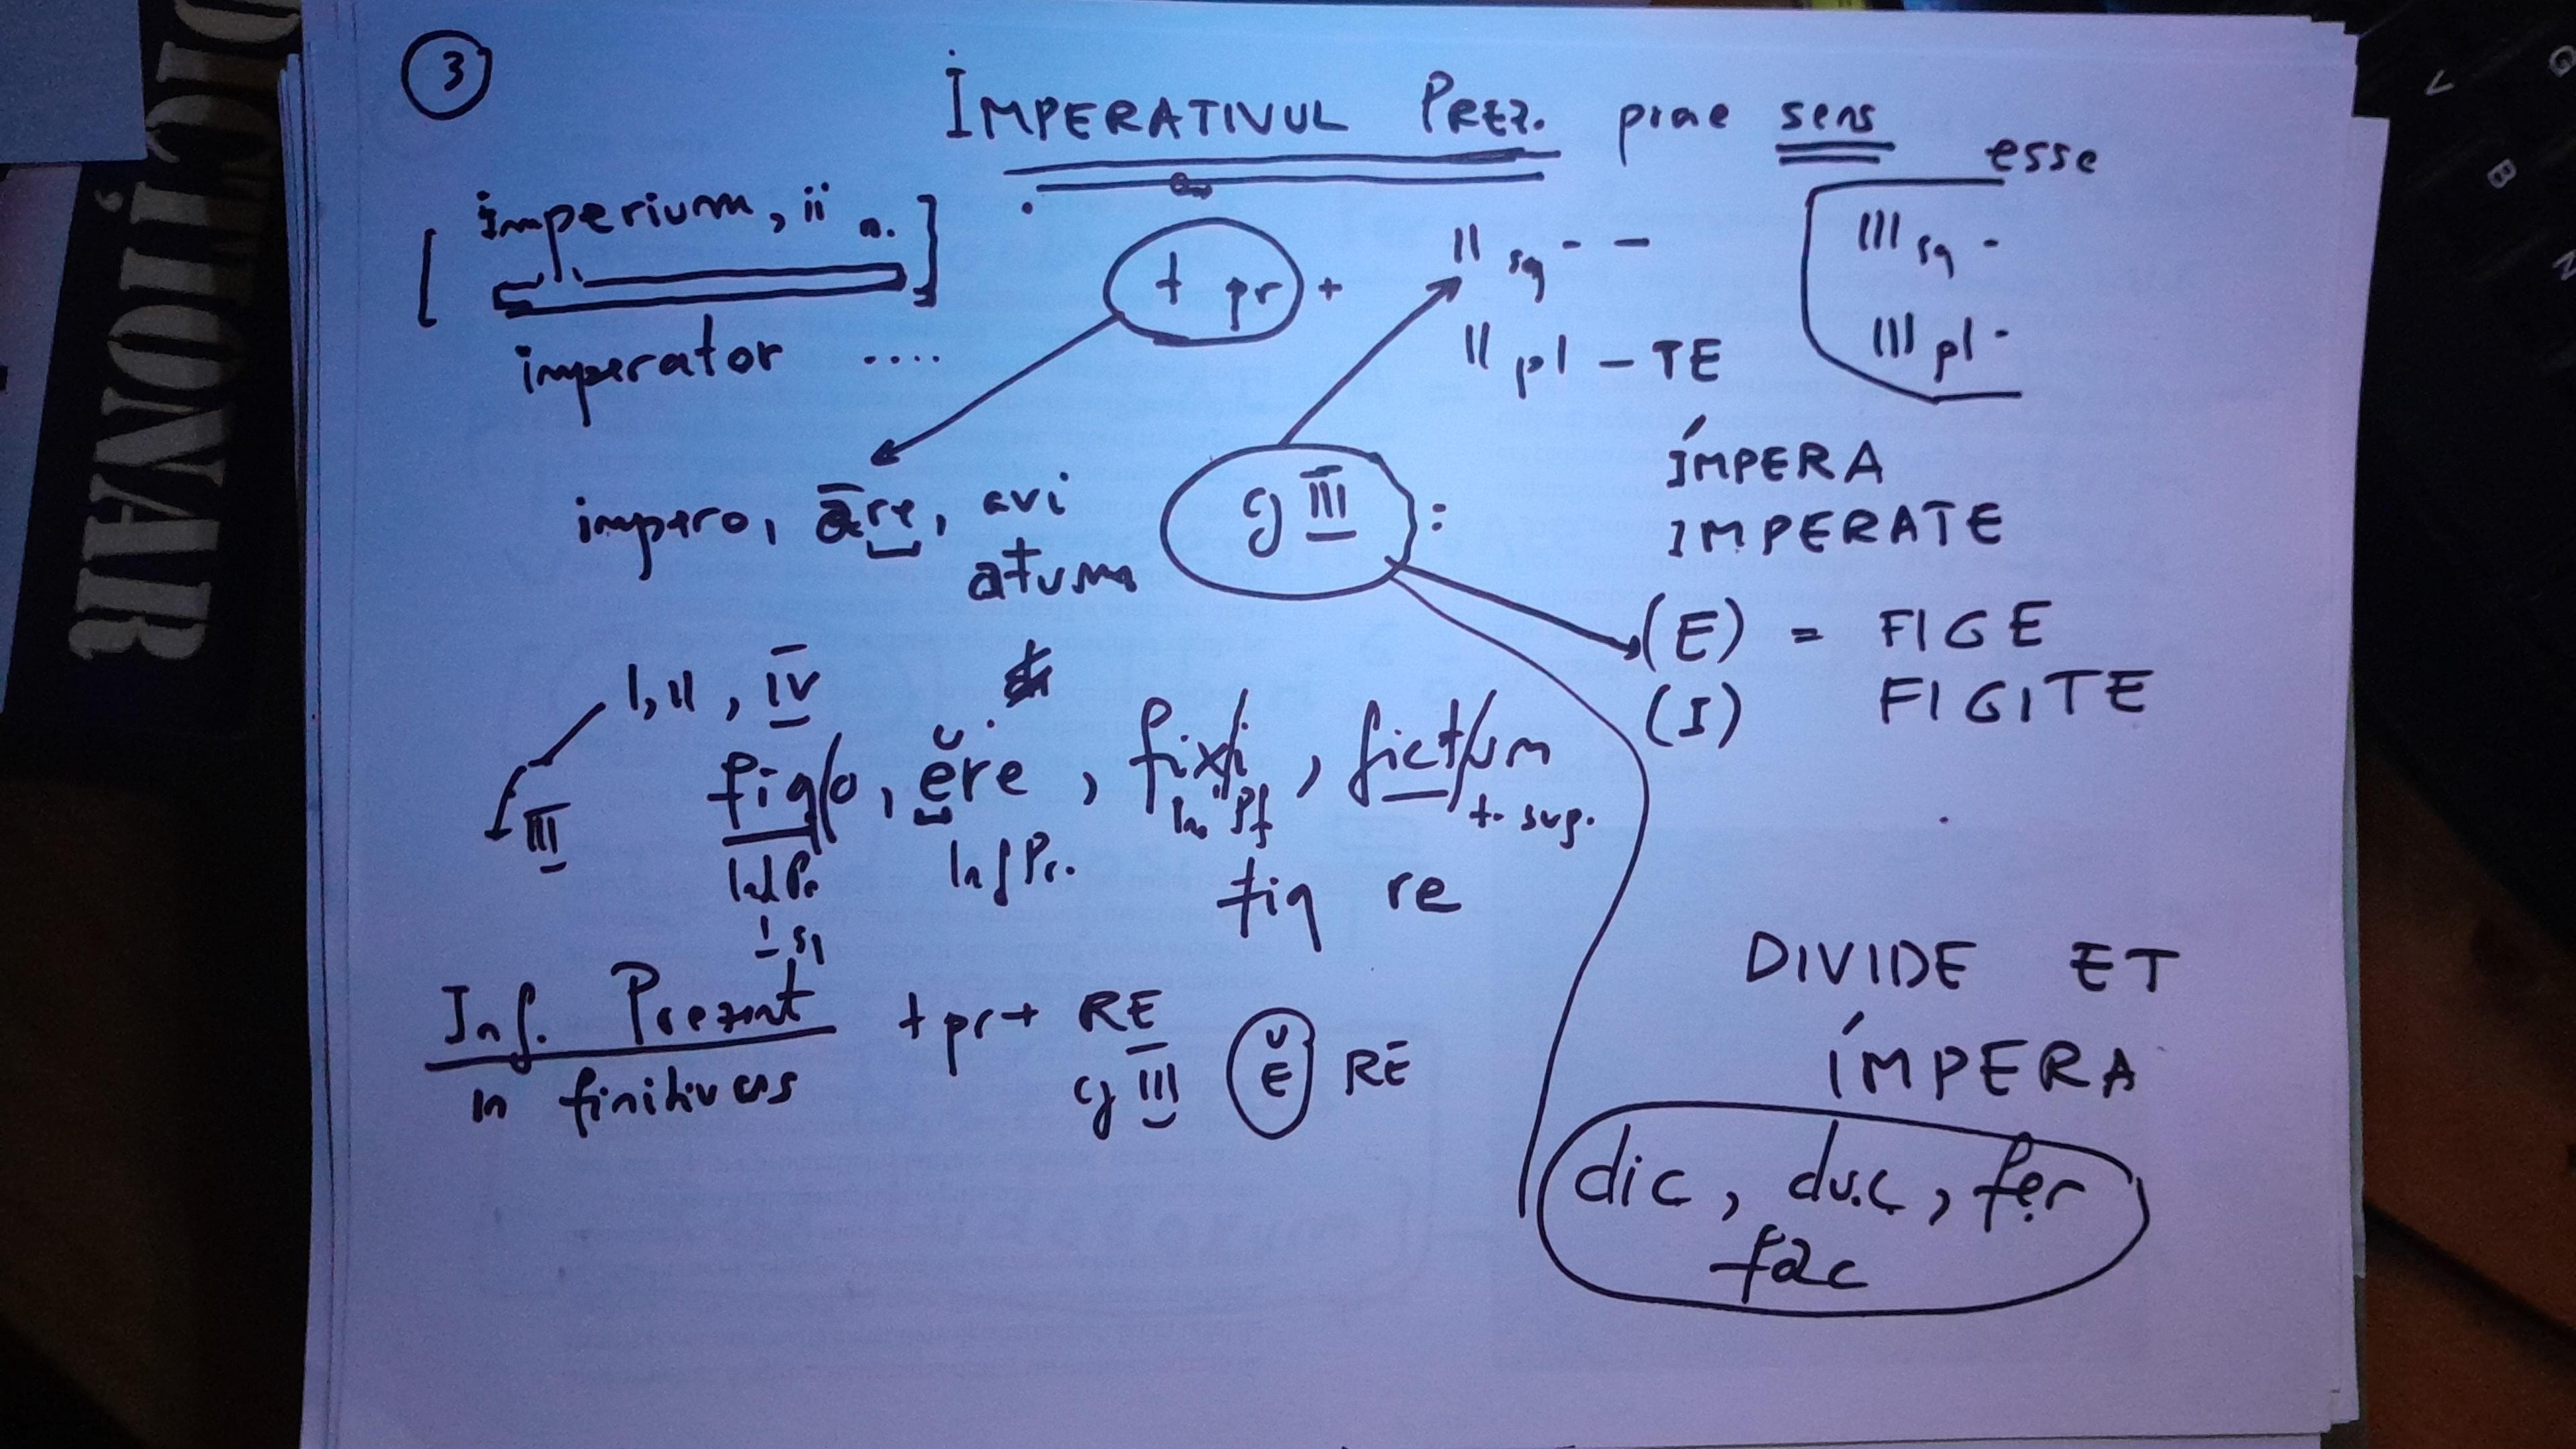 DICȚIONAR
3
IMPERATIVUL PREZ. prae sens esse
[ imperium, ii n. ]
imperator ....
t pr + II sg - -
II pl - TE
III sg -
III pl -
impero, āre, avi
atum
cj III :
ÍMPERA
IMPERATE
(E) = FIGE
(I) FIGITE
I, II, IV
III
fig/o, ĕre, fix/i, fict/um
Inf Pr. t. sup.
I sg
fig re
Inf. Prezent t pr + RE
in finitivus cj III Ĕ RE
DIVIDE ET
ÍMPERA
dic, duc, fer
fac